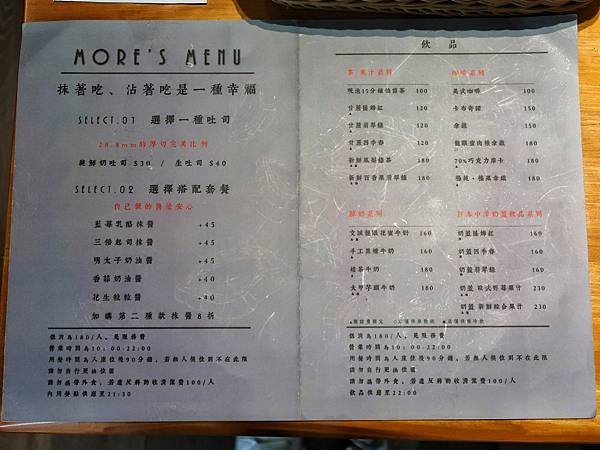 MORE'S MENU
抹著吃、沾著吃是一種幸福
SELECT.01 選擇一種吐司
28.8mm的厚切完美比例
純鮮奶吐司 $30 / 生吐司 $40
SELECT.02 選擇搭配套餐
自己做的醬最安心
藍莓乳酪抹醬 +45
三倍起司抹醬 +45
明太子奶油醬 +45
香蒜奶油醬 +45
花生粒粒醬 +45
加購第二種款抹醬8折
低消為180/人、免服務費
營業時間為10:00-22:00
用餐時間為入座位後90分鐘,若無人候位則不在此限
請勿自行更換位置
請勿攜帶外食,若違反將酌收清潔費100/人
內用餐點供應至21:30
飲品
茶.果汁系列
現泡15分鐘伯爵茶 100
甘蔗 120
甘蔗翡翠 120
甘蔗四季春 120
新鮮鳳梨綠茶 180
新鮮百香果翡翠綠 180
咖啡系列
美式咖啡 100
卡布奇諾 150
拿鐵 150
龍眼蜜肉桂拿鐵 180
70%巧克力摩卡 180
榛果拿鐵 180
鮮奶系列
文誠種龍眼花蜜牛奶 160
手工黑糖牛奶 160
抹茶牛奶 160
大甲芋頭牛奶 160
日本中澤奶蓋飲品系列
奶蓋 160
奶蓋四季春 160
奶蓋翡翠綠 160
奶蓋 歐式野莓果汁 230
奶蓋 新鮮綜合果汁 230
低消為180/人、免服務費
營業時間為10:00-22:00
用餐時間為入座位後90分鐘,若無人候位則不在此限
請勿自行更換位置
請勿攜帶外食,若違反將酌收清潔費100/人
飲品供應至22:00